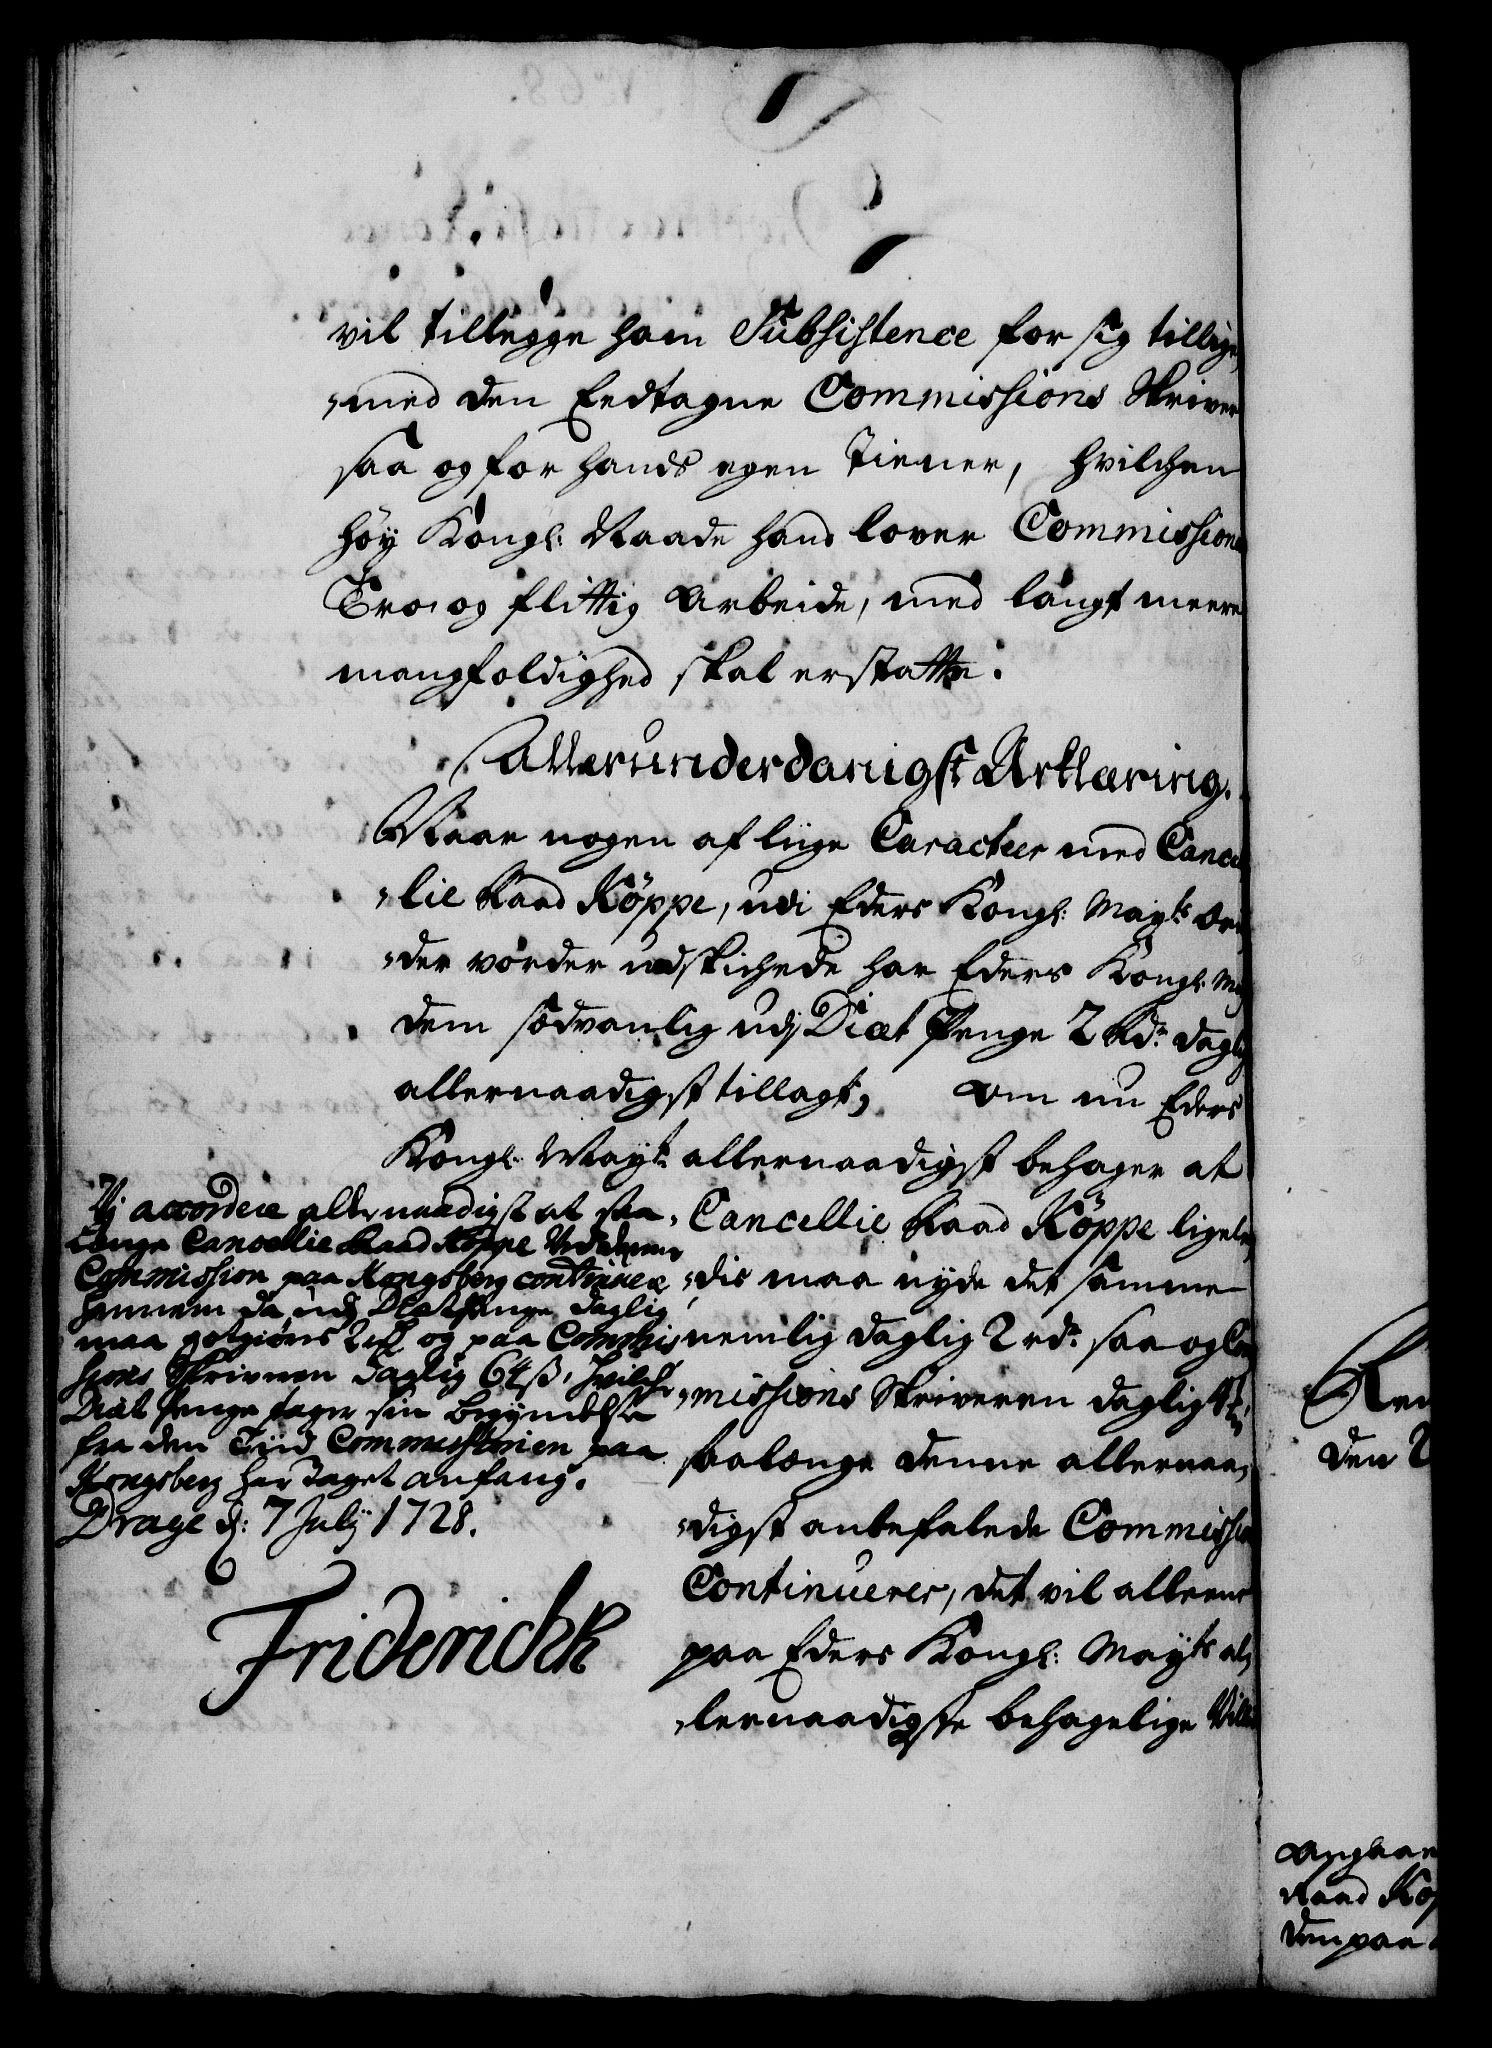 vil tillegge ham Subsistence for sig tillige
med den Eedtagne Commissions Skriver
saa og for hands egen Tiener, hvilchen
höy Kongl: Naade hand lover Commissionens
Tro og flittig Arbeide, med langt meere
mangfoldighed skal erstatte.
Allerunderdanigst Erklæring.
Naar nogen af liige Caracteer med Cancel
lie Raad Köppe, udi Eders Kongl: Mayts Ær
der vorder udskichede har Eders Kongl: May
dem sædvanlig udj Diæt Penge 2 Rdr daglig
allernaadigst tillagt, Om nu Eders
Kongl: Mayt: allernaadigst behager at
Cancellie Raad Köppe ligele
dis maa nyde det samme
nemlig daglig 2 rdr: saa og Com
missions Skriveren daglig
saalænge denne allernaa
digst anbefalede Commission
Continuerer, det vil alleene
paa Eders Kongl: Mayts al
lernaadigste behagelige Villie
Vj accordere allernaadigst at saa
længe Cancellie Raad Köppe Ved denne
Commission paa Kongsberg continuerer
hannem da udj Diætpenge daglig
maa gotgiøres 2 rd og paa Commis
sions Skriveren daglig 64 ß, hvilche
Diæt penge tager sin begyndelse
fra den Tiid Commissionen paa
Kongsberg har taget anfang.
Drage d: 7 July 1728.
Friderich R
den
Angaaen
Raad Köp
den paa